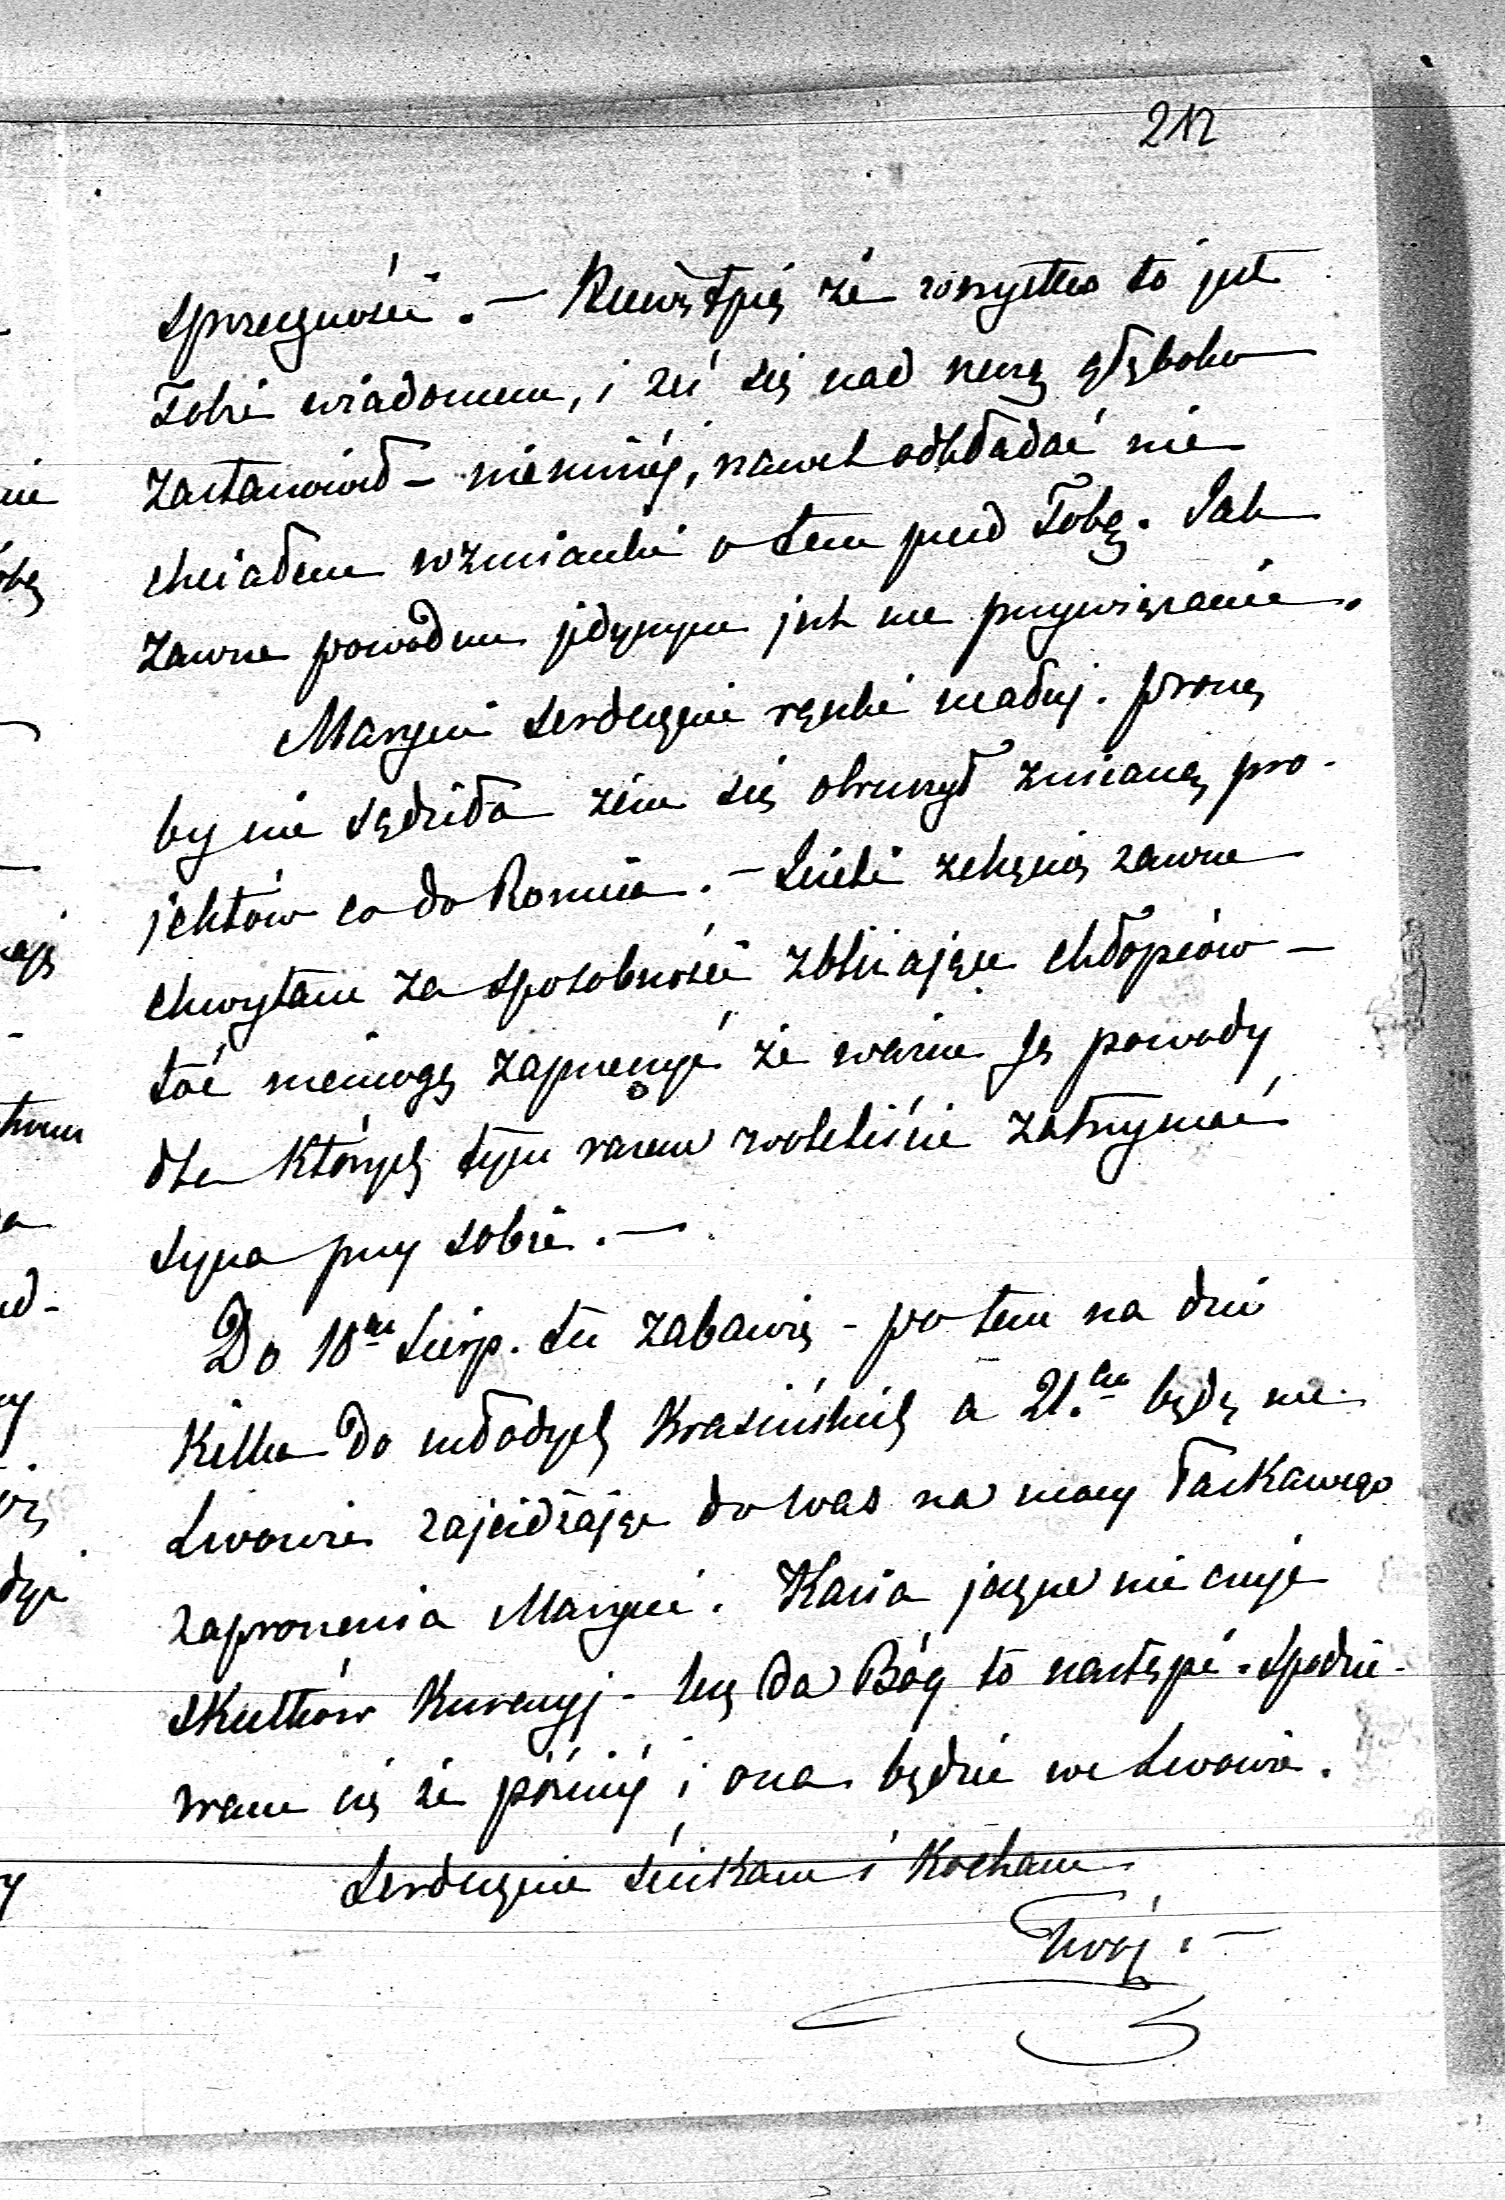 212
sprzeczności. — Niewątpię że wszystko to jest
Tobie wiadomem, i żeś się nad rzeczą głęboko
zastanowił — niemniéj, nawet odkładać nie
chciałem wzmianki o tem przed Tobą. Jak
zawsze powodem jedynym jest me przywiązanie.
Maryni serdecznie rączki całuj. proszę
by nie sądziła żem się obruszył zmianą pro-
jektów co do Romcia. — Jeśli z chęcią zawsze
chwytam za sposobność zbliżające chłopców —
toć niemogę zaprzeczyć że ważne są powody
dla których tym razem woleliście zatrzymać
syna przy sobie. —
Do 18go Sierp. tu zabawię — potem na dni
kilka do młodych Krasińskich a 21.go będę we
Lwowie zajeżdżając do was na mocy łaskawego
zaproszenia Maryni. Kasia jeszcze nie czuje
skutków kuracyj — lecz da Bóg to nastąpi. Spodzie-
wam się że później i ona będzie we Lwowie.
Serdecznie ściskam i kocham
Twój. —